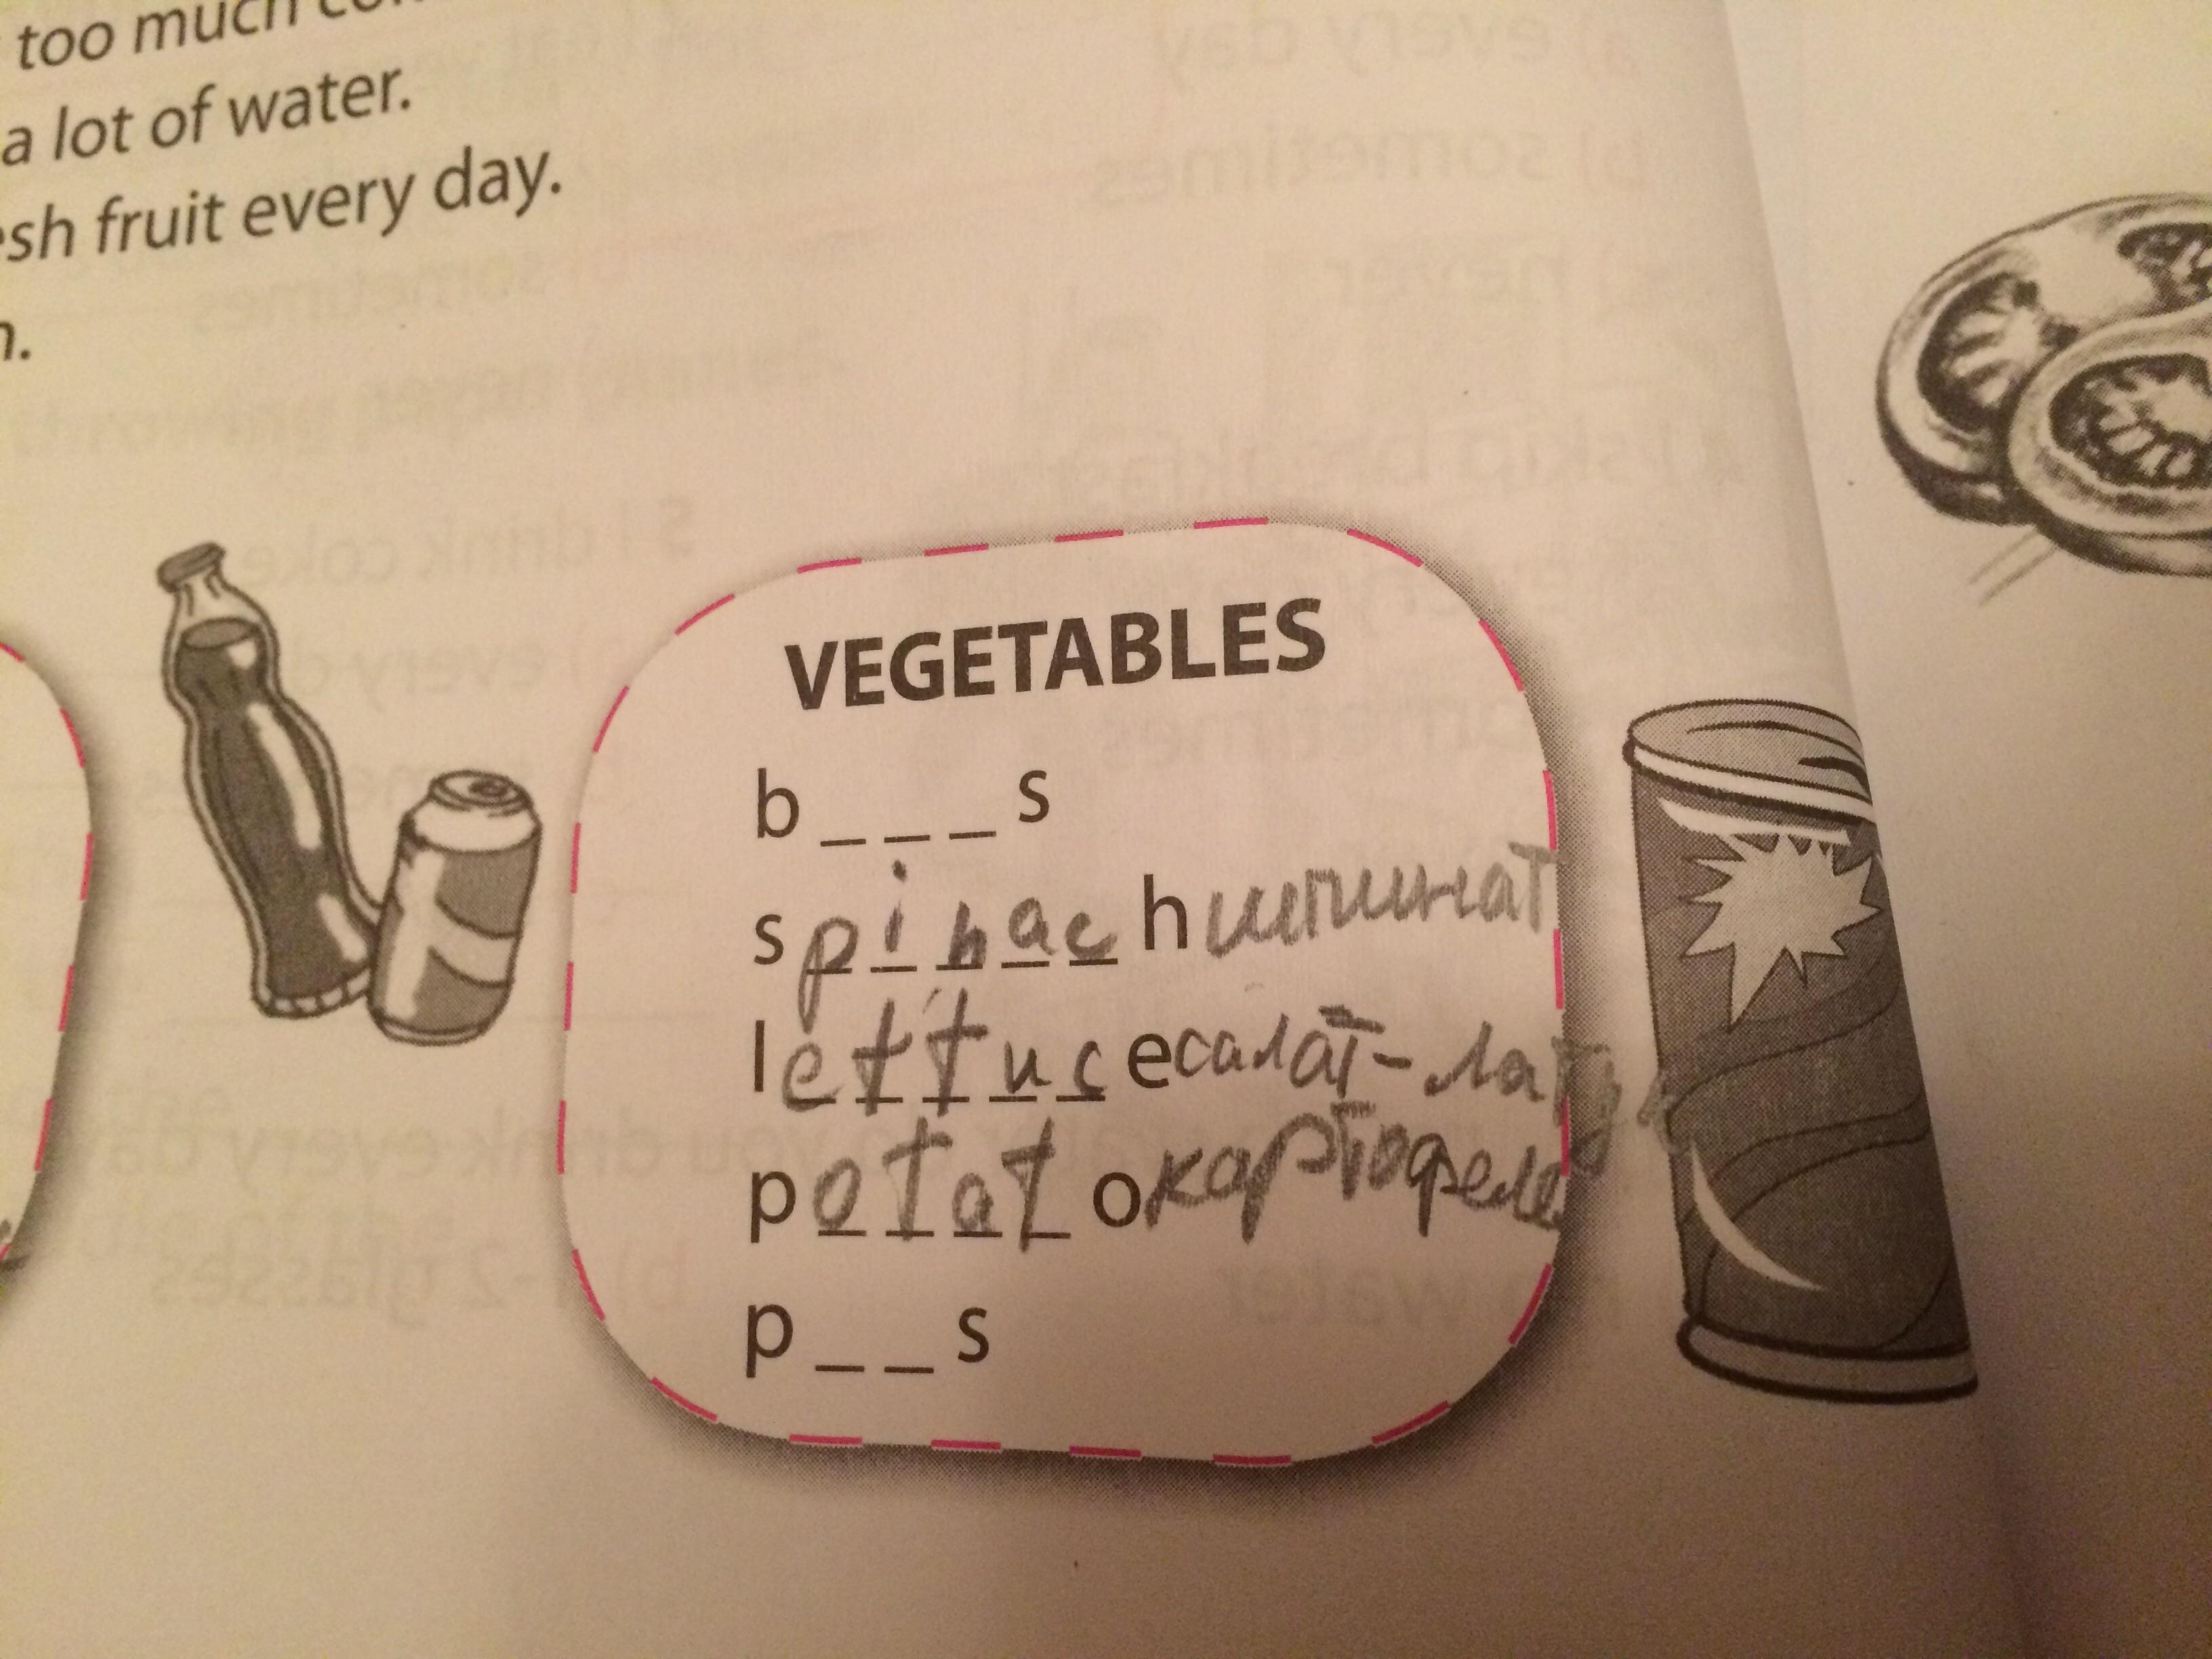 too much
a lot of water.
esh fruit every day.
n.
VEGETABLES
b _ _ _ s
spinach шпинат
lettuce салат-латук
potato картофель
p _ _ s